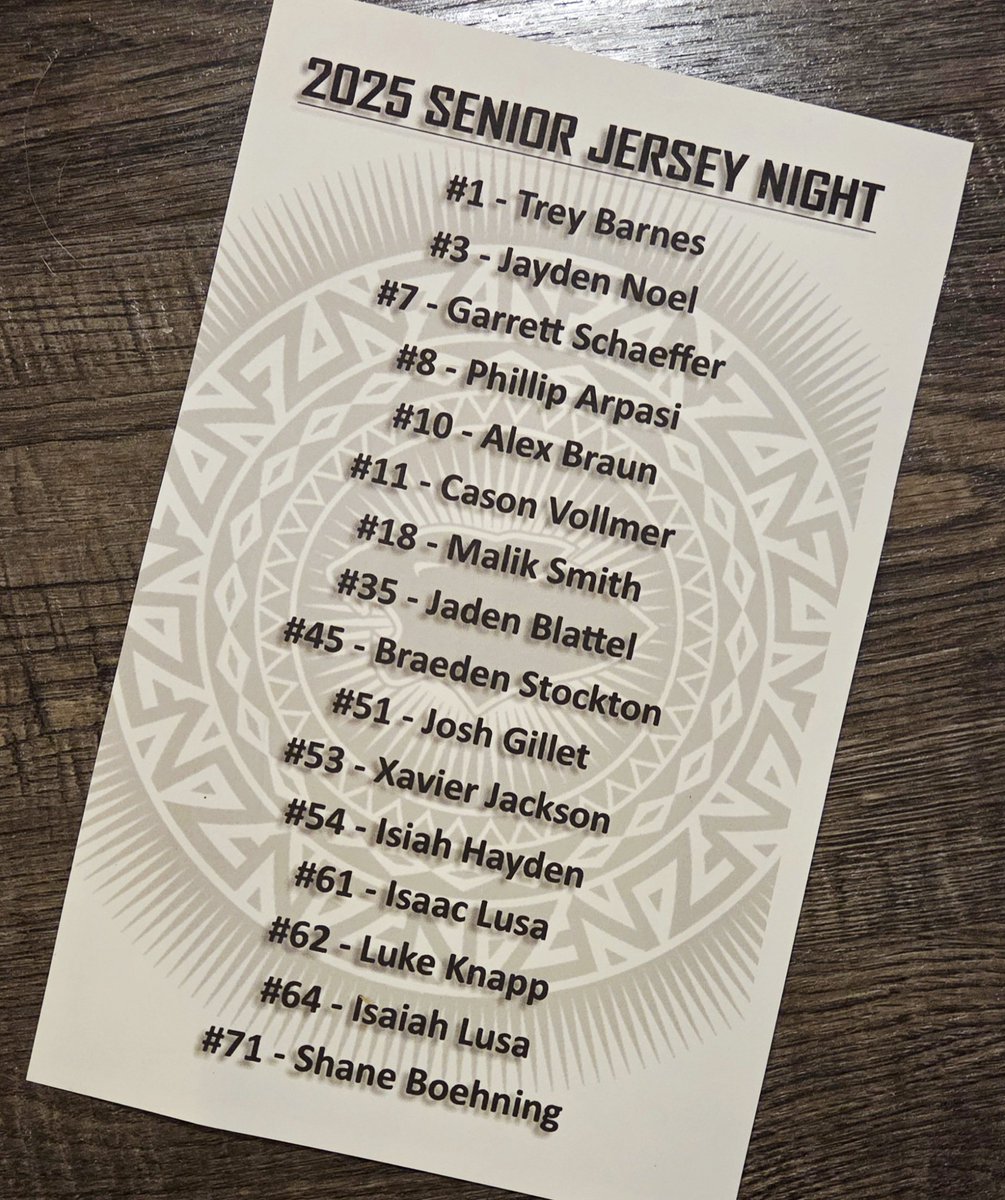 2025 SENIOR JERSEY NIGHT
#1 - Trey Barnes
#3 - Jayden Noel
#7 - Garrett Schaeffer
#8 - Phillip Arpasi
#10 - Alex Braun
#11 - Cason Vollmer
#18 - Malik Smith
#35 - Jaden Blattel
#45 - Braeden Stockton
#51 - Josh Gillet
#53 - Xavier Jackson
#54 - Isiah Hayden
#61 - Isaac Lusa
#62 - Luke Knapp
#64 - Isaiah Lusa
#71 - Shane Boehning